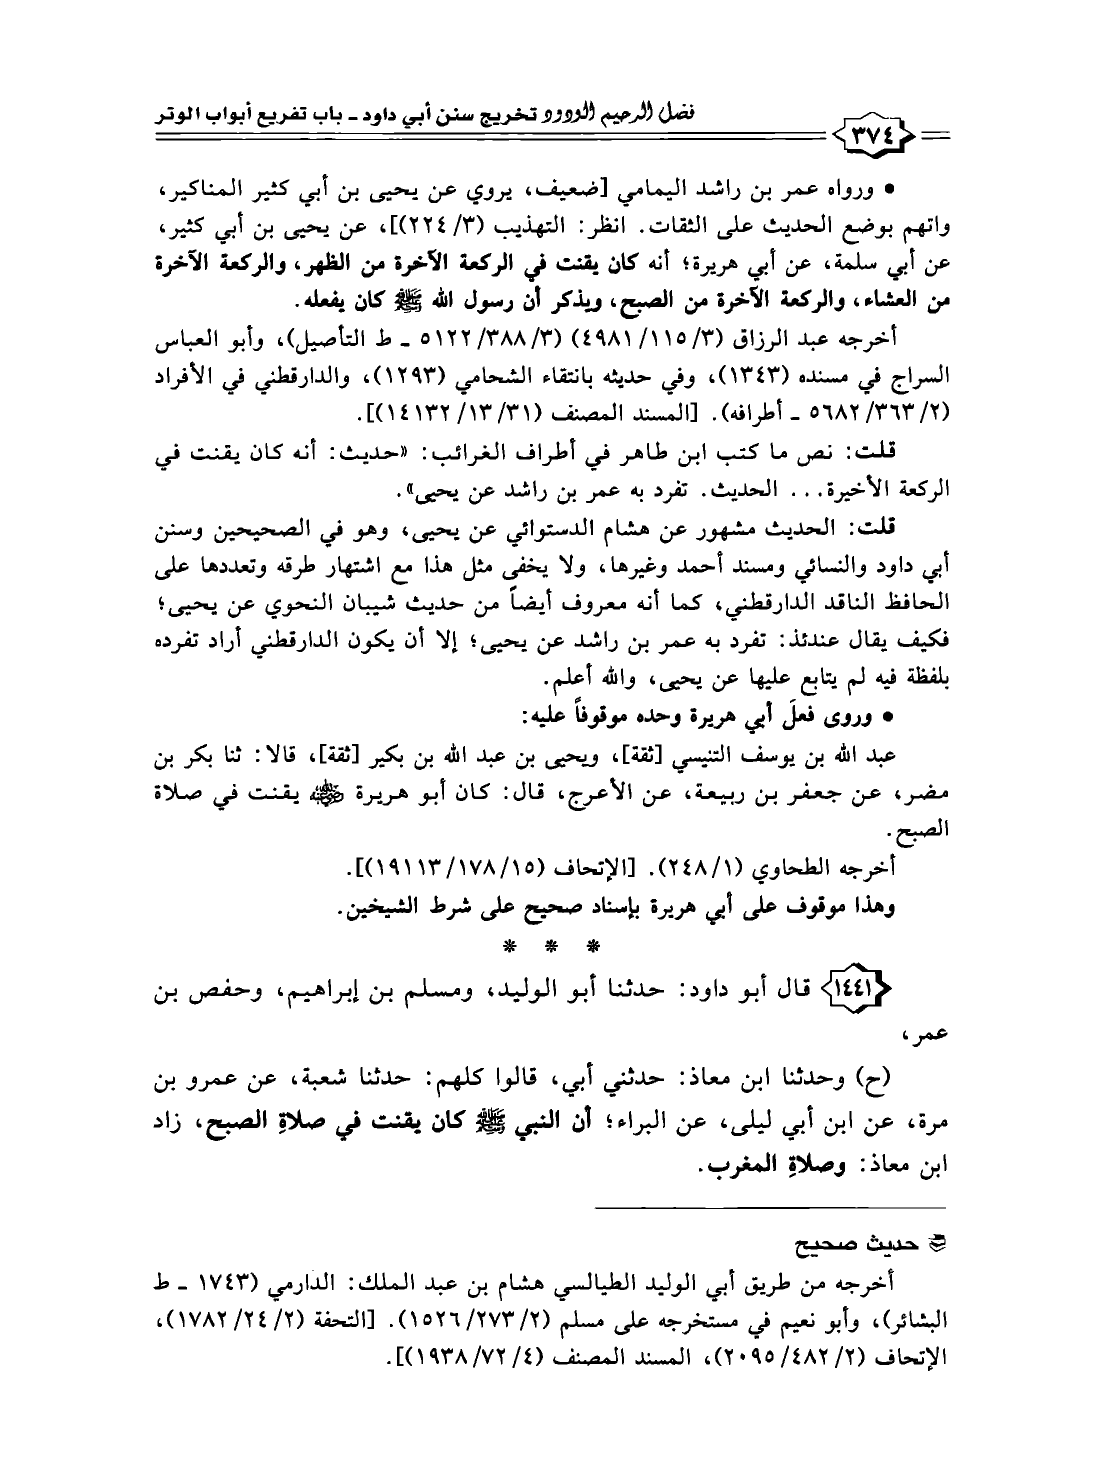 فضل الرحيم الودود تخريج سنن أبي داود ـ باب تفريع أبواب الوتر
٣٧٤
• ورواه عمر بن راشد اليمامي [ضعيف، يروي عن يحيى بن أبي كثير المناكير،
واتهم بوضع الحديث على الثقات. انظر: التهذيب (٣/ ٢٢٤)]، عن يحيى بن أبي كثير،
عن أبي سلمة، عن أبي هريرة؛ أنه كان يقنت في الركعة الآخرة من الظهر، والركعة الآخرة
من العشاء، والركعة الآخرة من الصبح، ويذكر أن رسول الله ﷺ كان يفعله.
أخرجه عبد الرزاق (٣/ ١١٥/ ٤٩٨١) (٣/ ٣٨٨/ ٥١٢٢ ـ ط التأصيل)، وأبو العباس
السراج في مسنده (١٣٤٣)، وفي حديثه بانتقاء الشحامي (١٢٩٣)، والدارقطني في الأفراد
(٢/ ٣٦٣/ ٥٦٨٢ ـ أطرافه). [المسند المصنف (٣١/ ١٣/ ١٤١٣٢)].
قلت: نص ما كتب ابن طاهر في أطراف الغرائب: «حديث: أنه كان يقنت في
الركعة الأخيرة... الحديث. تفرد به عمر بن راشد عن يحيى».
قلت: الحديث مشهور عن هشام الدستوائي عن يحيى، وهو في الصحيحين وسنن
أبي داود والنسائي ومسند أحمد وغيرها، ولا يخفى مثل هذا مع اشتهار طرقه وتعددها على
الحافظ الناقد الدارقطني، كما أنه معروف أيضاً من حديث شيبان النحوي عن يحيى؛
فكيف يقال عندئذ: تفرد به عمر بن راشد عن يحيى؛ إلا أن يكون الدارقطني أراد تفرده
بلفظة فيه لم يتابع عليها عن يحيى، والله أعلم.
• وروى فعلَ أبي هريرة وحده موقوفاً عليه:
عبد الله بن يوسف التنيسي [ثقة]، ويحيى بن عبد الله بن بكير [ثقة]، قالا: ثنا بكر بن
مضر، عن جعفر بن ربيعة، عن الأعرج، قال: كان أبو هريرة رضي الله عنه يقنت في صلاة
الصبح.
أخرجه الطحاوي (١/ ٢٤٨). [الإتحاف (١٥/ ١٧٨/ ١٩١١٣)].
وهذا موقوف على أبي هريرة بإسناد صحيح على شرط الشيخين.
* * *
١٤٤١ قال أبو داود: حدثنا أبو الوليد، ومسلم بن إبراهيم، وحفص بن
عمر،
(ح) وحدثنا ابن معاذ: حدثني أبي، قالوا كلهم: حدثنا شعبة، عن عمرو بن
مرة، عن ابن أبي ليلى، عن البراء؛ أن النبي ﷺ كان يقنت في صلاةِ الصبح، زاد
ابن معاذ: وصلاةِ المغرب.
حديث صحيح
أخرجه من طريق أبي الوليد الطيالسي هشام بن عبد الملك: الدارمي (١٧٤٣ ـ ط
البشائر)، وأبو نعيم في مستخرجه على مسلم (٢/ ٢٧٣/ ١٥٢٦). [التحفة (٢/ ٢٤/ ١٧٨٢)،
الإتحاف (٢/ ٤٨٢/ ٢٠٩٥)، المسند المصنف (٤/ ٧٢/ ١٩٣٨)].